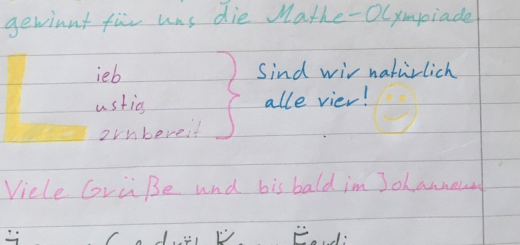 gewinnt für uns die Mathe-Olympiade
L
ieb Sind wir natürlich
ustig alle vier!
ernbereit
Viele Grüße und bis bald im Johanneum